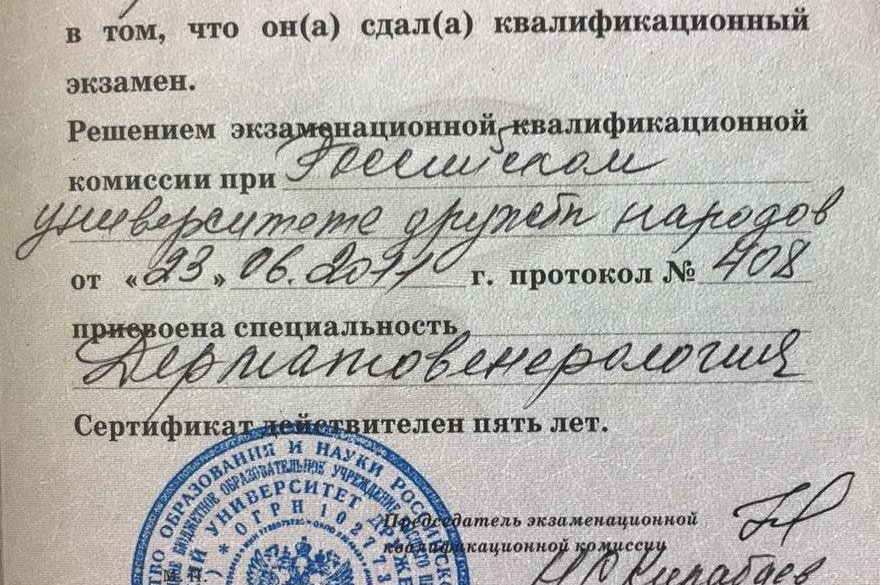 в том, что он(а) сдал(а) квалификационный
экзамен.
Решением экзаменационной квалификационной
комиссии при Российском
университете дружбы народов
от «23» 06.2011 г. протокол № 408
присвоена специальность
Дерматовенерология
Сертификат действителен пять лет.
ОБРАЗОВАНИЯ И НАУКИ РОССИЙСК
БЮДЖЕТНОЕ ОБРАЗОВАТЕЛЬНОЕ УЧРЕЖДЕНИЕ
УНИВЕРСИТЕТ ДРУЖ
* ОГРН 102773
М. П.
Председатель экзаменационной
квалификационной комиссии